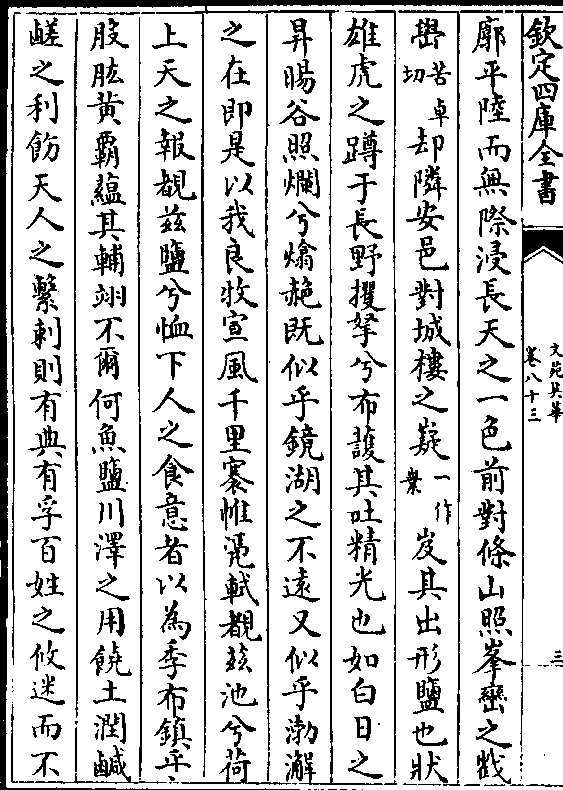 欽定四庫全書
文苑英華
卷八十三
三
廓平陸而無際浸長天之一色前對條山照峯巒之㦸
嶨苦卓切却隣安邑對城樓之嶷一作岌其出形鹽也狀
雄虎之蹲于長野攫拏兮布護其吐精光也如白日之
昇暘谷照爛兮燴赩既似乎鏡湖之不遠又似乎渤澥
之在即是以我良牧宣風千里褰帷凭軾覩兹池兮荷
上天之報覩兹鹽兮恤下人之食意者以為季布鎮乎
股肱黄霸藴其輔翊不爾何魚鹽川澤之用饒土潤鹹
鹺之利飭天人之繫剌則有典有孚百姓之攸迷而不